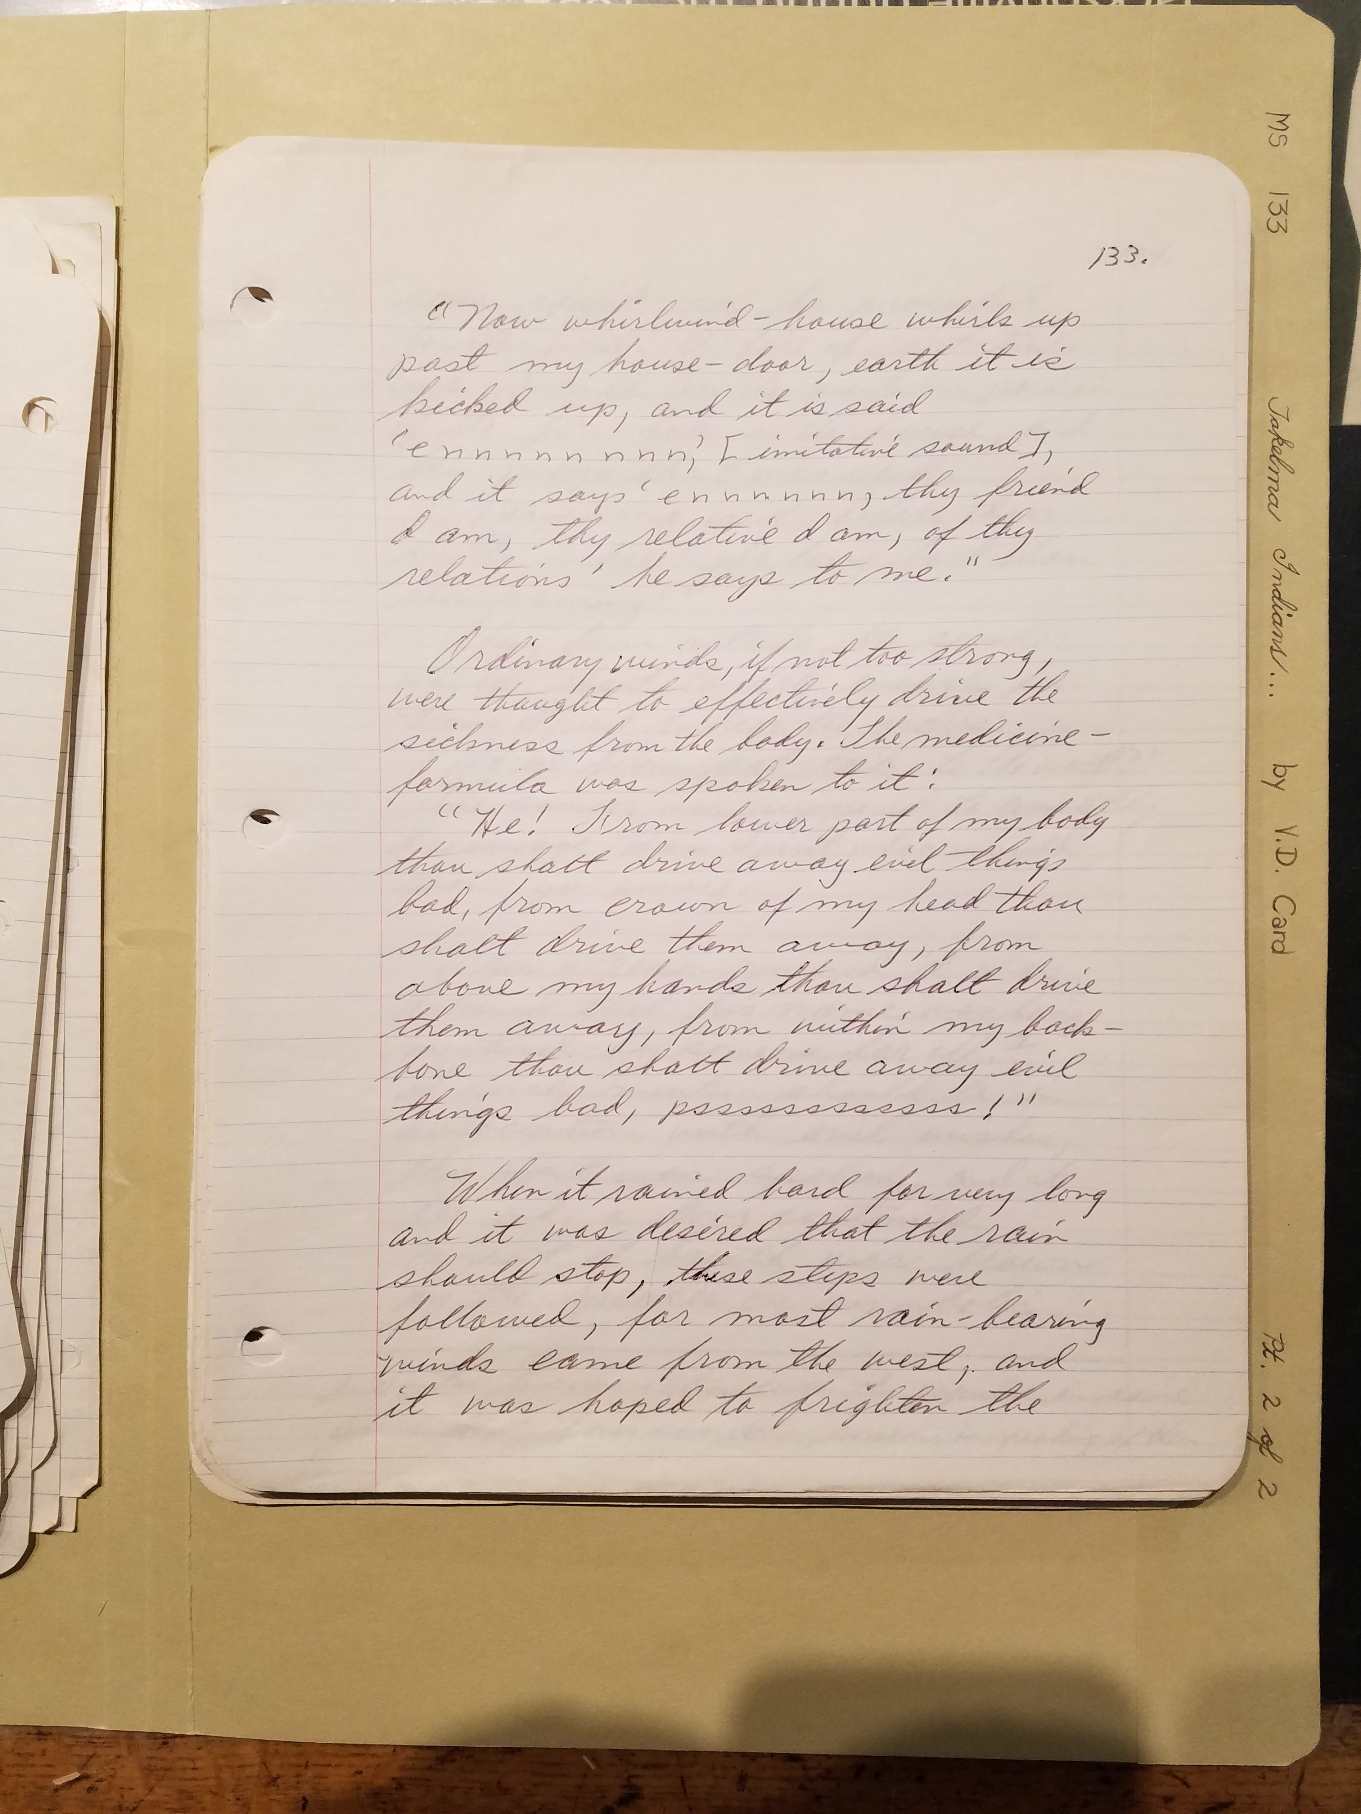 133.
"Now whirlwind-house whirls up
past my house-door, earth it is
kicked up, and it is said
'ennnnnnnnn,' [imitative sound],
and it says 'ennnnnnn, thy friend
I am, thy relative I am, of thy
relations' he says to me."
Ordinary winds, if not too strong,
were thought to effectively drive the
sickness from the body. The medicine-
formula was spoken to it:
"He! From lower part of my body
thou shalt drive away evil things
bad, from crown of my head thou
shalt drive them away, from
above my hands thou shalt drive
them away, from within my back-
bone thou shalt drive away evil
things bad, psssssssssssss!"
When it rained hard for very long
and it was desired that the rain
should stop, these steps were
followed, for most rain-bearing
winds came from the west, and
it was hoped to frighten the
MS 133 Takelma Indians... by V.D. Card Pt. 2 of 2